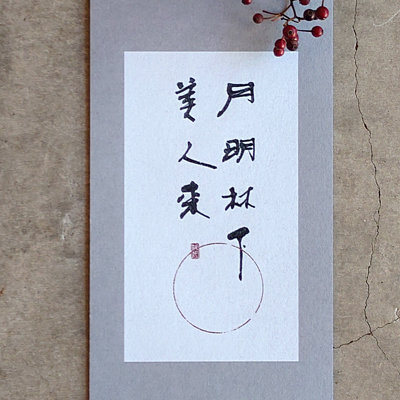 月明林下
美人来